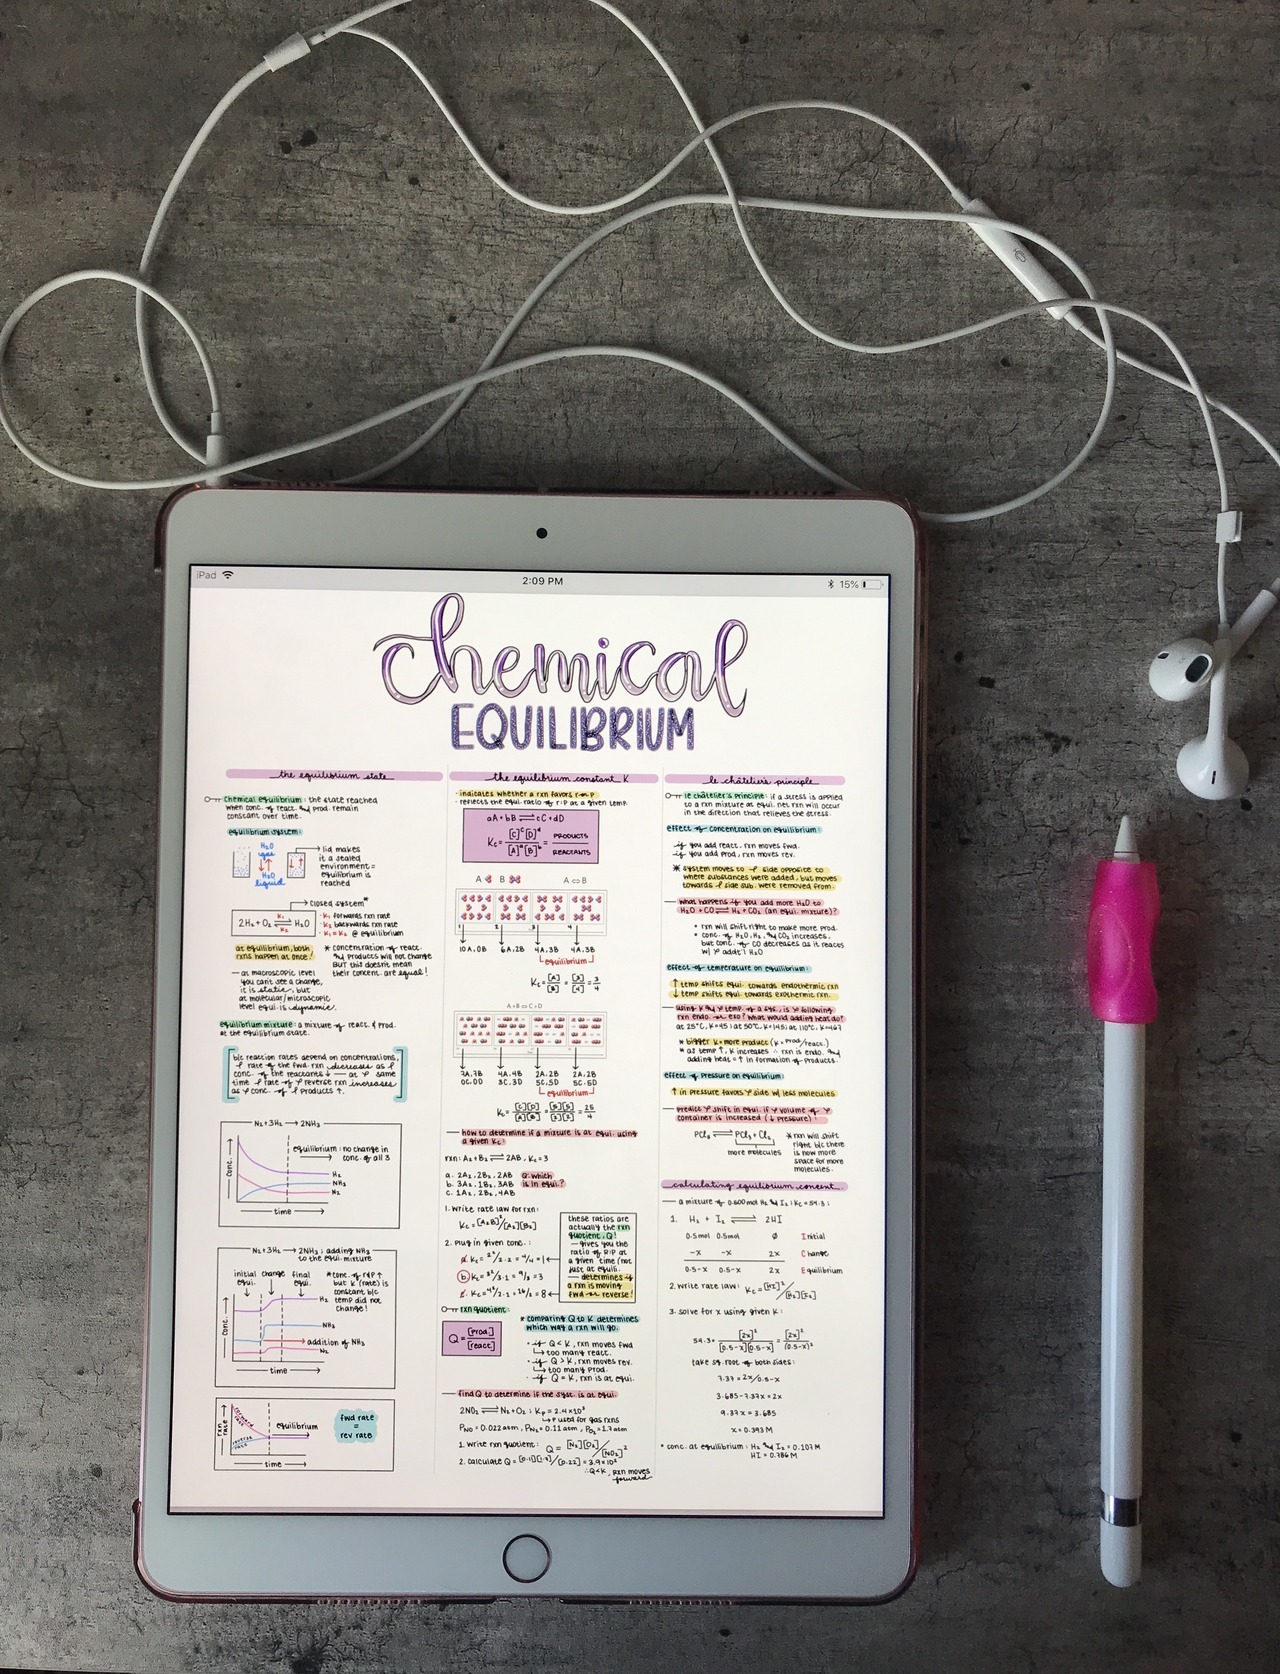 iPad
2:09 PM
15%
chemical
EQUILIBRIUM
the equilibrium state
chemical equilibrium: the state reached
when conc. of react. and prod. remain
constant over time.
equilibrium system:
H₂O
gas
H₂O
liquid
lid makes
it a sealed
environment =
equilibrium is
reached
closed system*
2H₂ + O₂ ⇌ H₂O
K₁
K₂
· K₁ forwards rxn rate
· K₂ backwards rxn rate
· K₁ = K₂ @ equilibrium
at equilibrium, both
rxns happen at once!
* concentration of react.
and products will not change
BUT this doesn't mean
their concent. are equal!
— at macroscopic level
you can't see a change,
it is static, but
at molecular/microscopic
level equi. is dynamic.
equilibrium mixture: a mixture of react. & prod.
at the equilibrium state.
b/c reaction rates depend on concentrations,
rate of the fwd. rxn decreases as
conc. of the reactants ↓ — at same
time rate of reverse rxn increases
as conc. of products ↑.
N₂ + 3H₂ → 2NH₃
equilibrium: no change in
conc. of all 3
conc.
H₂
NH₃
N₂
time
N₂ + 3H₂ → 2NH₃ : adding NH₃
to the equi. mixture
initial
equi.
change
final
equi.
*conc. of r&p ↑
but K (rate) is
constant b/c
temp did not
change!
conc.
H₂
NH₃
addition of NH₃
N₂
time
rxn rate
forward
rate
reverse
rate
equilibrium
time
fwd rate
=
rev rate
the equilibrium constant K
· indicates whether a rxn favors r or p
· reflects the equi. ratio of r:p at a given temp.
aA + bB ⇌ cC + dD
Kc = [C]^c [D]^d / [A]^a [B]^b = PRODUCTS / REACTANTS
A B A ⇌ B
1 2 3 4
10A, 0B 6A, 2B 4A, 3B 4A, 3B
equilibrium
Kc = [A]/[B] = [3]/[4] = 3/4
A + B ⇌ C + D
7A, 7B 4A, 4B 2A, 2B 2A, 2B
0C, 0D 3C, 3D 5C, 5D 5C, 5D
equilibrium
Kc = [C][D]/[A][B] = [5][5]/[2][2] = 25/4
— how to determine if a mixture is at equi. using
a given Kc:
rxn: A₂ + B₂ ⇌ 2AB, Kc = 3
a. 2A₂, 2B₂, 2AB
b. 3A₂, 1B₂, 3AB
c. 1A₂, 2B₂, 4AB
Q: which
is in equi.?
1. write rate law for rxn:
Kc = [A₂B]²/[A₂][B₂]
2. plug in given conc.:
a. Kc = 2²/2·2 = 4/4 = 1
b. Kc = 3²/3·1 = 9/3 = 3
c. Kc = 4²/2·1 = 16/2 = 8
these ratios are
actually the rxn
quotient, Q!
— gives you the
ratio of R:P at
a given time (not
just at equili.
— determines if
a rxn is moving
fwd or reverse!
rxn quotient:
Q = [prod.]/[react]
* comparing Q to K determines
which way a rxn will go.
· if Q < K, rxn moves fwd
↳ too many react.
· if Q > K, rxn moves rev.
↳ too many prod.
· if Q = K, rxn is at equi.
— find Q to determine if the syst. is at equi.
2NO₂ ⇌ N₂ + O₂ ; Kp = 2.4×10³
↳ P used for gas rxns
P_NO = 0.022 atm, P_N₂ = 0.11 atm, P_O₂ = 1.7 atm
1. write rxn quotient: Q = [N₂][O₂]/[NO₂]²
2. calculate Q = [0.11][1.7]/[0.22] = 3.9×10²
∴ Q<K, rxn moves
forward
le châtelier's principle
le châtelier's principle: if a stress is applied
to a rxn mixture at equi. net rxn will occur
in the direction that relieves the stress.
effect of concentration on equilibrium:
· if you add react. rxn moves fwd.
· if you add prod, rxn moves rev.
* system moves to side opposite to
where substances were added, but moves
towards side sub. were removed from.
— what happens if you add more H₂O to
H₂O + CO ⇌ H₂ + CO₂ (an equi. mixture)?
• rxn will shift right to make more prod.
• conc. of H₂O, H₂, and CO₂ increases,
but conc. of CO decreases as it reacts
w/ addt'l H₂O
effect of temperature on equilibrium:
↑ temp shifts equi. towards endothermic rxn
↓ temp shifts equi. towards exothermic rxn.
— using K and temp. of a sys., is following
rxn endo. or exo? What would adding heat do?
at 25°C, K=45; at 50°C, K=145; at 110°C, K=467
* bigger K = more product (K = prod/react.)
* as temp ↑, K increases ∴ rxn is endo. and
adding heat = ↑ in formation of products.
effect of pressure on equilibrium:
↑ in pressure favors side w/ less molecules
— predict shift in equi. if volume of
container is increased (↓ pressure):
PCl₅ ⇌ PCl₃ + Cl₂
more molecules
* rxn will shift
right b/c there
is now more
space for more
molecules.
calculating equilibrium concent.
— a mixture of 0.500 mol H₂ and I₂ : Kc = 54.3 :
1. H₂ + I₂ ⇌ 2HI
0.5mol 0.5mol Ø Initial
-x -x 2x Change
0.5-x 0.5-x 2x Equilibrium
2. write rate law: Kc = [HI]²/[H₂][I₂]
3. solve for x using given K:
54.3 = [2x]²/[0.5-x][0.5-x] = [2x]²/(0.5-x)²
take sq. root of both sides:
7.37 = 2x/0.5-x
3.685 - 7.37x = 2x
9.37x = 3.685
x = 0.393 M
* conc. at equilibrium: H₂ and I₂ = 0.107 M
HI = 0.786 M